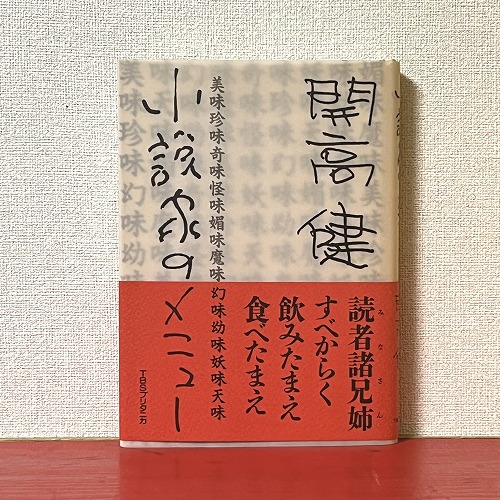 開高健
美味珍味奇味怪味媚味魔味幻味幼味妖味天味
小説家のメニュー
読者諸兄姉
みなさん
すべからく
飲みたまえ
食べたまえ
TBSブリタニカ